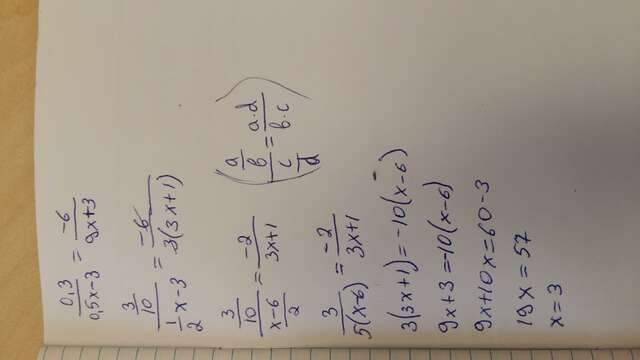 0,3/(0,5x-3) = -6/(9x+3)
(3/10)/(1/2 x-3) = -6/(3(3x+1))
(3/10)/((x-6)/2) = -2/(3x+1) ((a/b)/(c/d) = (a·d)/(b·c))
3/(5(x-6)) = -2/(3x+1)
3(3x+1)=-10(x-6)
9x+3=-10(x-6)
9x+10x=60-3
19x=57
x=3